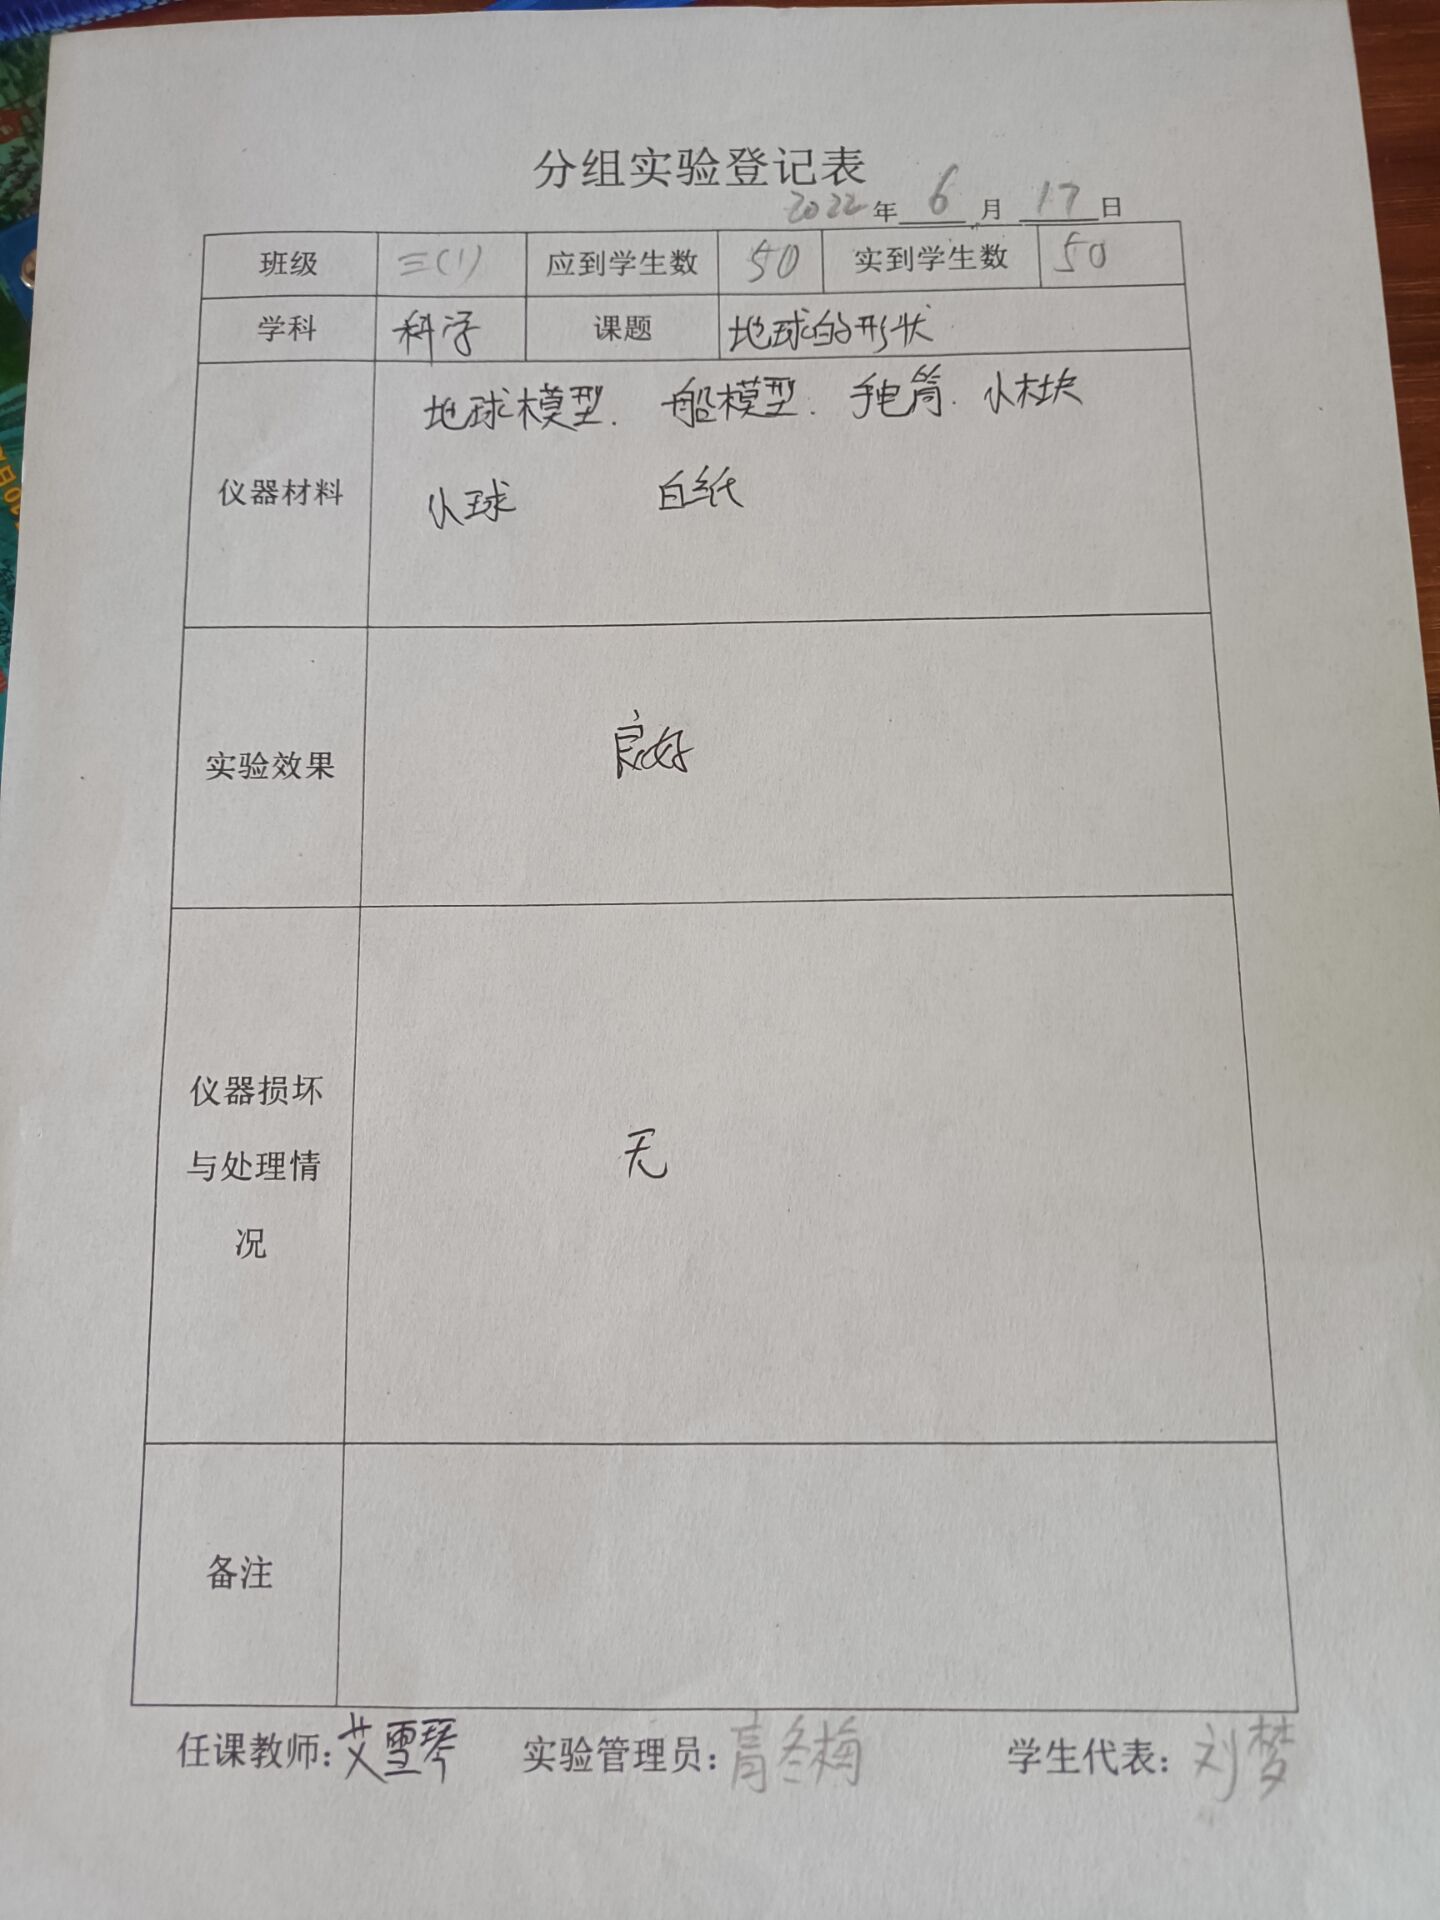 分组实验登记表
2022年 6 月 17 日
班级 三(1) 应到学生数 50 实到学生数 50
学科 科学 课题 地球的形状
地球模型. 船模型. 手电筒. 小木块
仪器材料 小球 白纸
实验效果 良好
仪器损坏
与处理情 无
况
备注
任课教师:艾雪琴 实验管理员:高冬梅 学生代表:刘梦